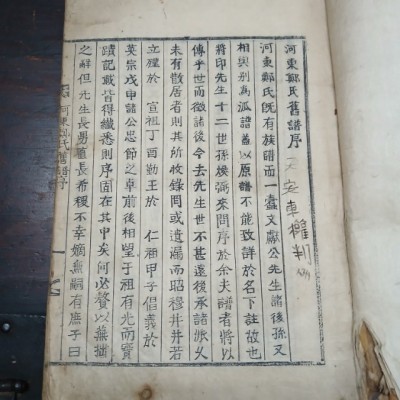 河東鄭氏舊譜序
河東鄭氏旣有族譜而一蠹文獻公先生諸後孫又
相與別為派譜蓋以原譜不能致詳於名下註故也
將印先生十二世孫煥弼來問序於余夫譜者將以
傳乎世而徵諸後今去先生世不甚遠後承諸派又
未有散居者則其所收錄罔或遺漏而昭穆井井若
立種於 宣祖丁酉勤王於 仁祖甲子倡義於
英宗戊申諸公忠節之卓前後相望于祖有光而實
蹟記載皆得纖悉則序固在其中矣何必贅以蕪拙
之辭但先生長男直長希稷不幸嫡無嗣有庶子曰
河東鄭氏舊譜序